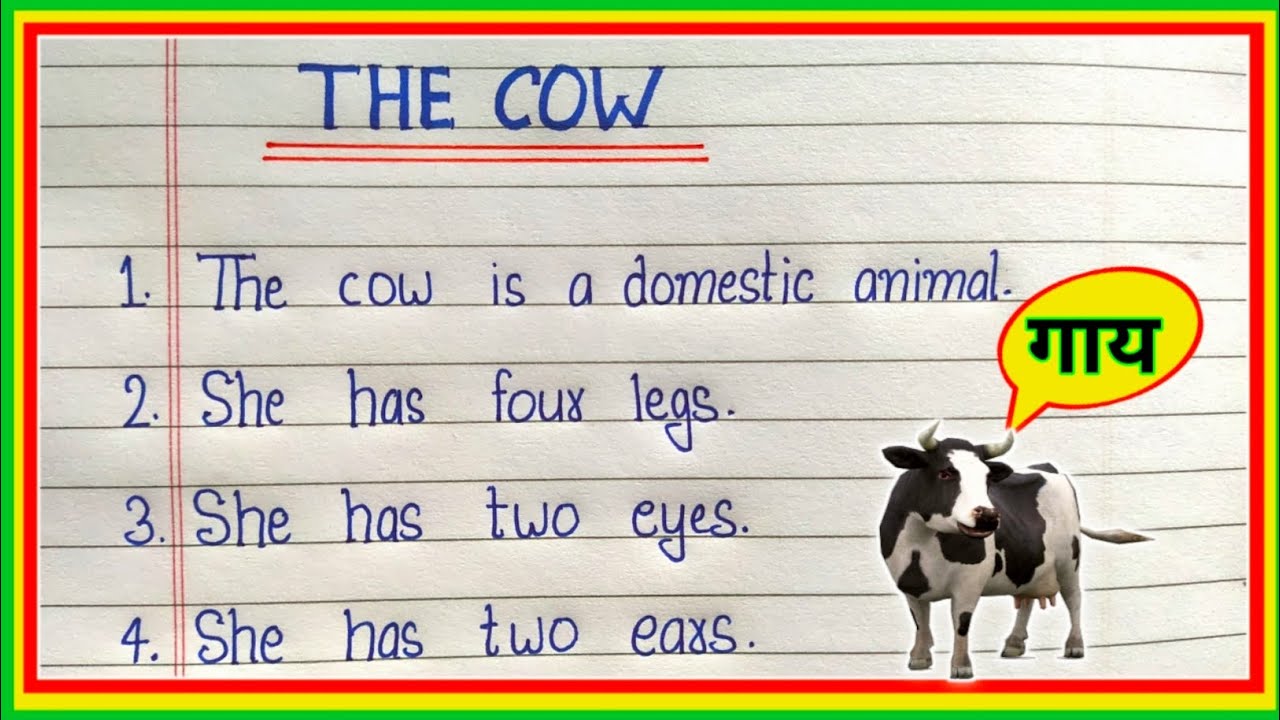 THE COW
1. The cow is a domestic animal.
गाय
2. She has four legs.
3. She has two eyes.
4. She has two ears.